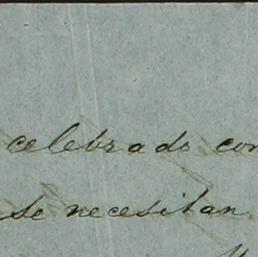 celebrado con
se necesitan